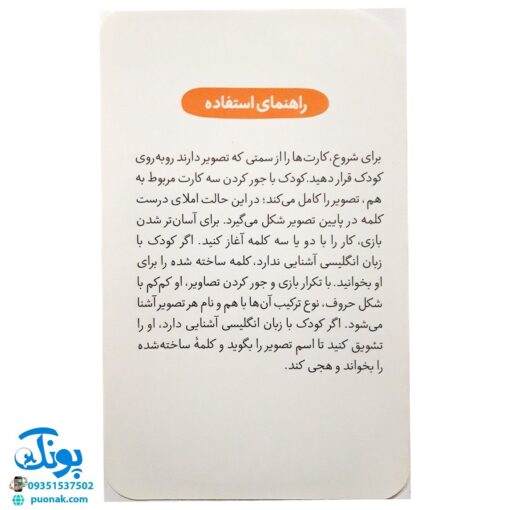 راهنمای استفاده
برای شروع، کارت‌ها را از سمتی که تصویر دارند روبه‌روی
کودک قرار دهید. کودک با جور کردن سه کارت مربوط به
هم، تصویر را کامل می‌کند؛ در این حالت املای درست
کلمه در پایین تصویر شکل می‌گیرد. برای آسان‌تر شدن
بازی، کار را با دو یا سه کلمه آغاز کنید. اگر کودک با
زبان انگلیسی آشنایی ندارد، کلمه ساخته شده را برای
او بخوانید. با تکرار بازی و جور کردن تصاویر، او کم‌کم با
شکل حروف، نوع ترکیب آن‌ها با هم و نام هر تصویر آشنا
می‌شود. اگر کودک با زبان انگلیسی آشنایی دارد، او را
تشویق کنید تا اسم تصویر را بگوید و کلمهٔ ساخته‌شده
را بخواند و هجی کند.
پونک
09351537502
puonak.com